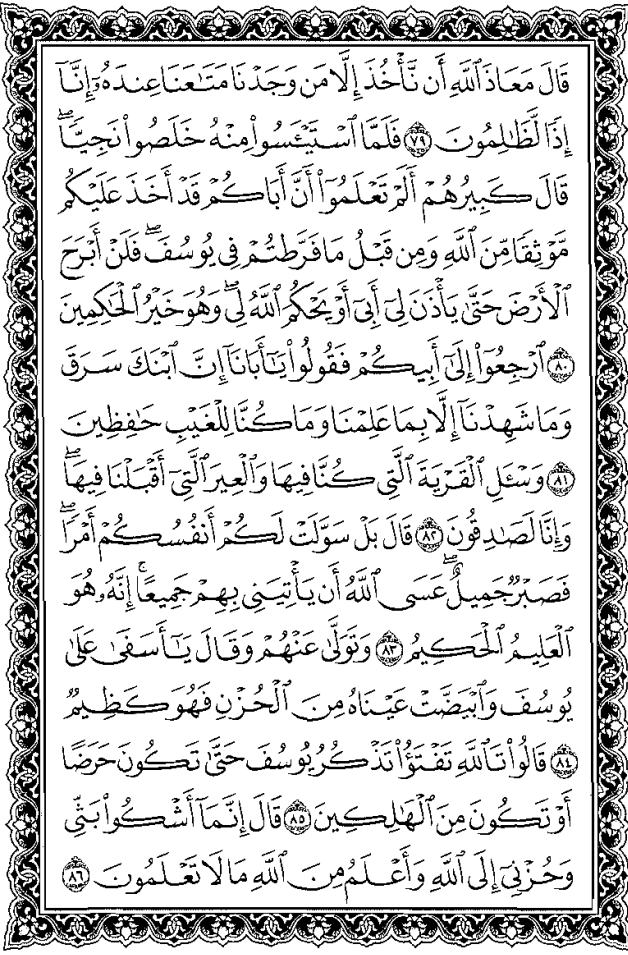 قَالَ مَعَاذَ ٱللَّهِ أَن نَّأْخُذَ إِلَّا مَن وَجَدْنَا مَتَٰعَنَا عِندَهُۥٓ إِنَّآ
إِذًا لَّظَٰلِمُونَ ٧٩ فَلَمَّا ٱسْتَيْـَٔسُوا۟ مِنْهُ خَلَصُوا۟ نَجِيًّاۖ
قَالَ كَبِيرُهُمْ أَلَمْ تَعْلَمُوٓا۟ أَنَّ أَبَاكُمْ قَدْ أَخَذَ عَلَيْكُم
مَّوْثِقًا مِّنَ ٱللَّهِ وَمِن قَبْلُ مَا فَرَّطتُمْ فِي يُوسُفَۖ فَلَنْ أَبْرَحَ
ٱلْأَرْضَ حَتَّىٰ يَأْذَنَ لِىٓ أَبِىٓ أَوْ يَحْكُمَ ٱللَّهُ لِىۖ وَهُوَ خَيْرُ ٱلْحَٰكِمِينَ
٨٠ ٱرْجِعُوٓا۟ إِلَىٰٓ أَبِيكُمْ فَقُولُوا۟ يَٰٓأَبَانَآ إِنَّ ٱبْنَكَ سَرَقَ
وَمَا شَهِدْنَآ إِلَّا بِمَا عَلِمْنَا وَمَا كُنَّا لِلْغَيْبِ حَٰفِظِينَ
٨١ وَسْـَٔلِ ٱلْقَرْيَةَ ٱلَّتِي كُنَّا فِيهَا وَٱلْعِيرَ ٱلَّتِىٓ أَقْبَلْنَا فِيهَاۖ
وَإِنَّا لَصَٰدِقُونَ ٨٢ قَالَ بَلْ سَوَّلَتْ لَكُمْ أَنفُسُكُمْ أَمْرًاۖ
فَصَبْرٌ جَمِيلٌۖ عَسَى ٱللَّهُ أَن يَأْتِيَنِي بِهِمْ جَمِيعًاۚ إِنَّهُۥ هُوَ
ٱلْعَلِيمُ ٱلْحَكِيمُ ٨٣ وَتَوَلَّىٰ عَنْهُمْ وَقَالَ يَٰٓأَسَفَىٰ عَلَىٰ
يُوسُفَ وَٱبْيَضَّتْ عَيْنَاهُ مِنَ ٱلْحُزْنِ فَهُوَ كَظِيمٌ
٨٤ قَالُوا۟ تَٱللَّهِ تَفْتَؤُا۟ تَذْكُرُ يُوسُفَ حَتَّىٰ تَكُونَ حَرَضًا
أَوْ تَكُونَ مِنَ ٱلْهَٰلِكِينَ ٨٥ قَالَ إِنَّمَآ أَشْكُوا۟ بَثِّي
وَحُزْنِىٓ إِلَى ٱللَّهِ وَأَعْلَمُ مِنَ ٱللَّهِ مَا لَا تَعْلَمُونَ ٨٦